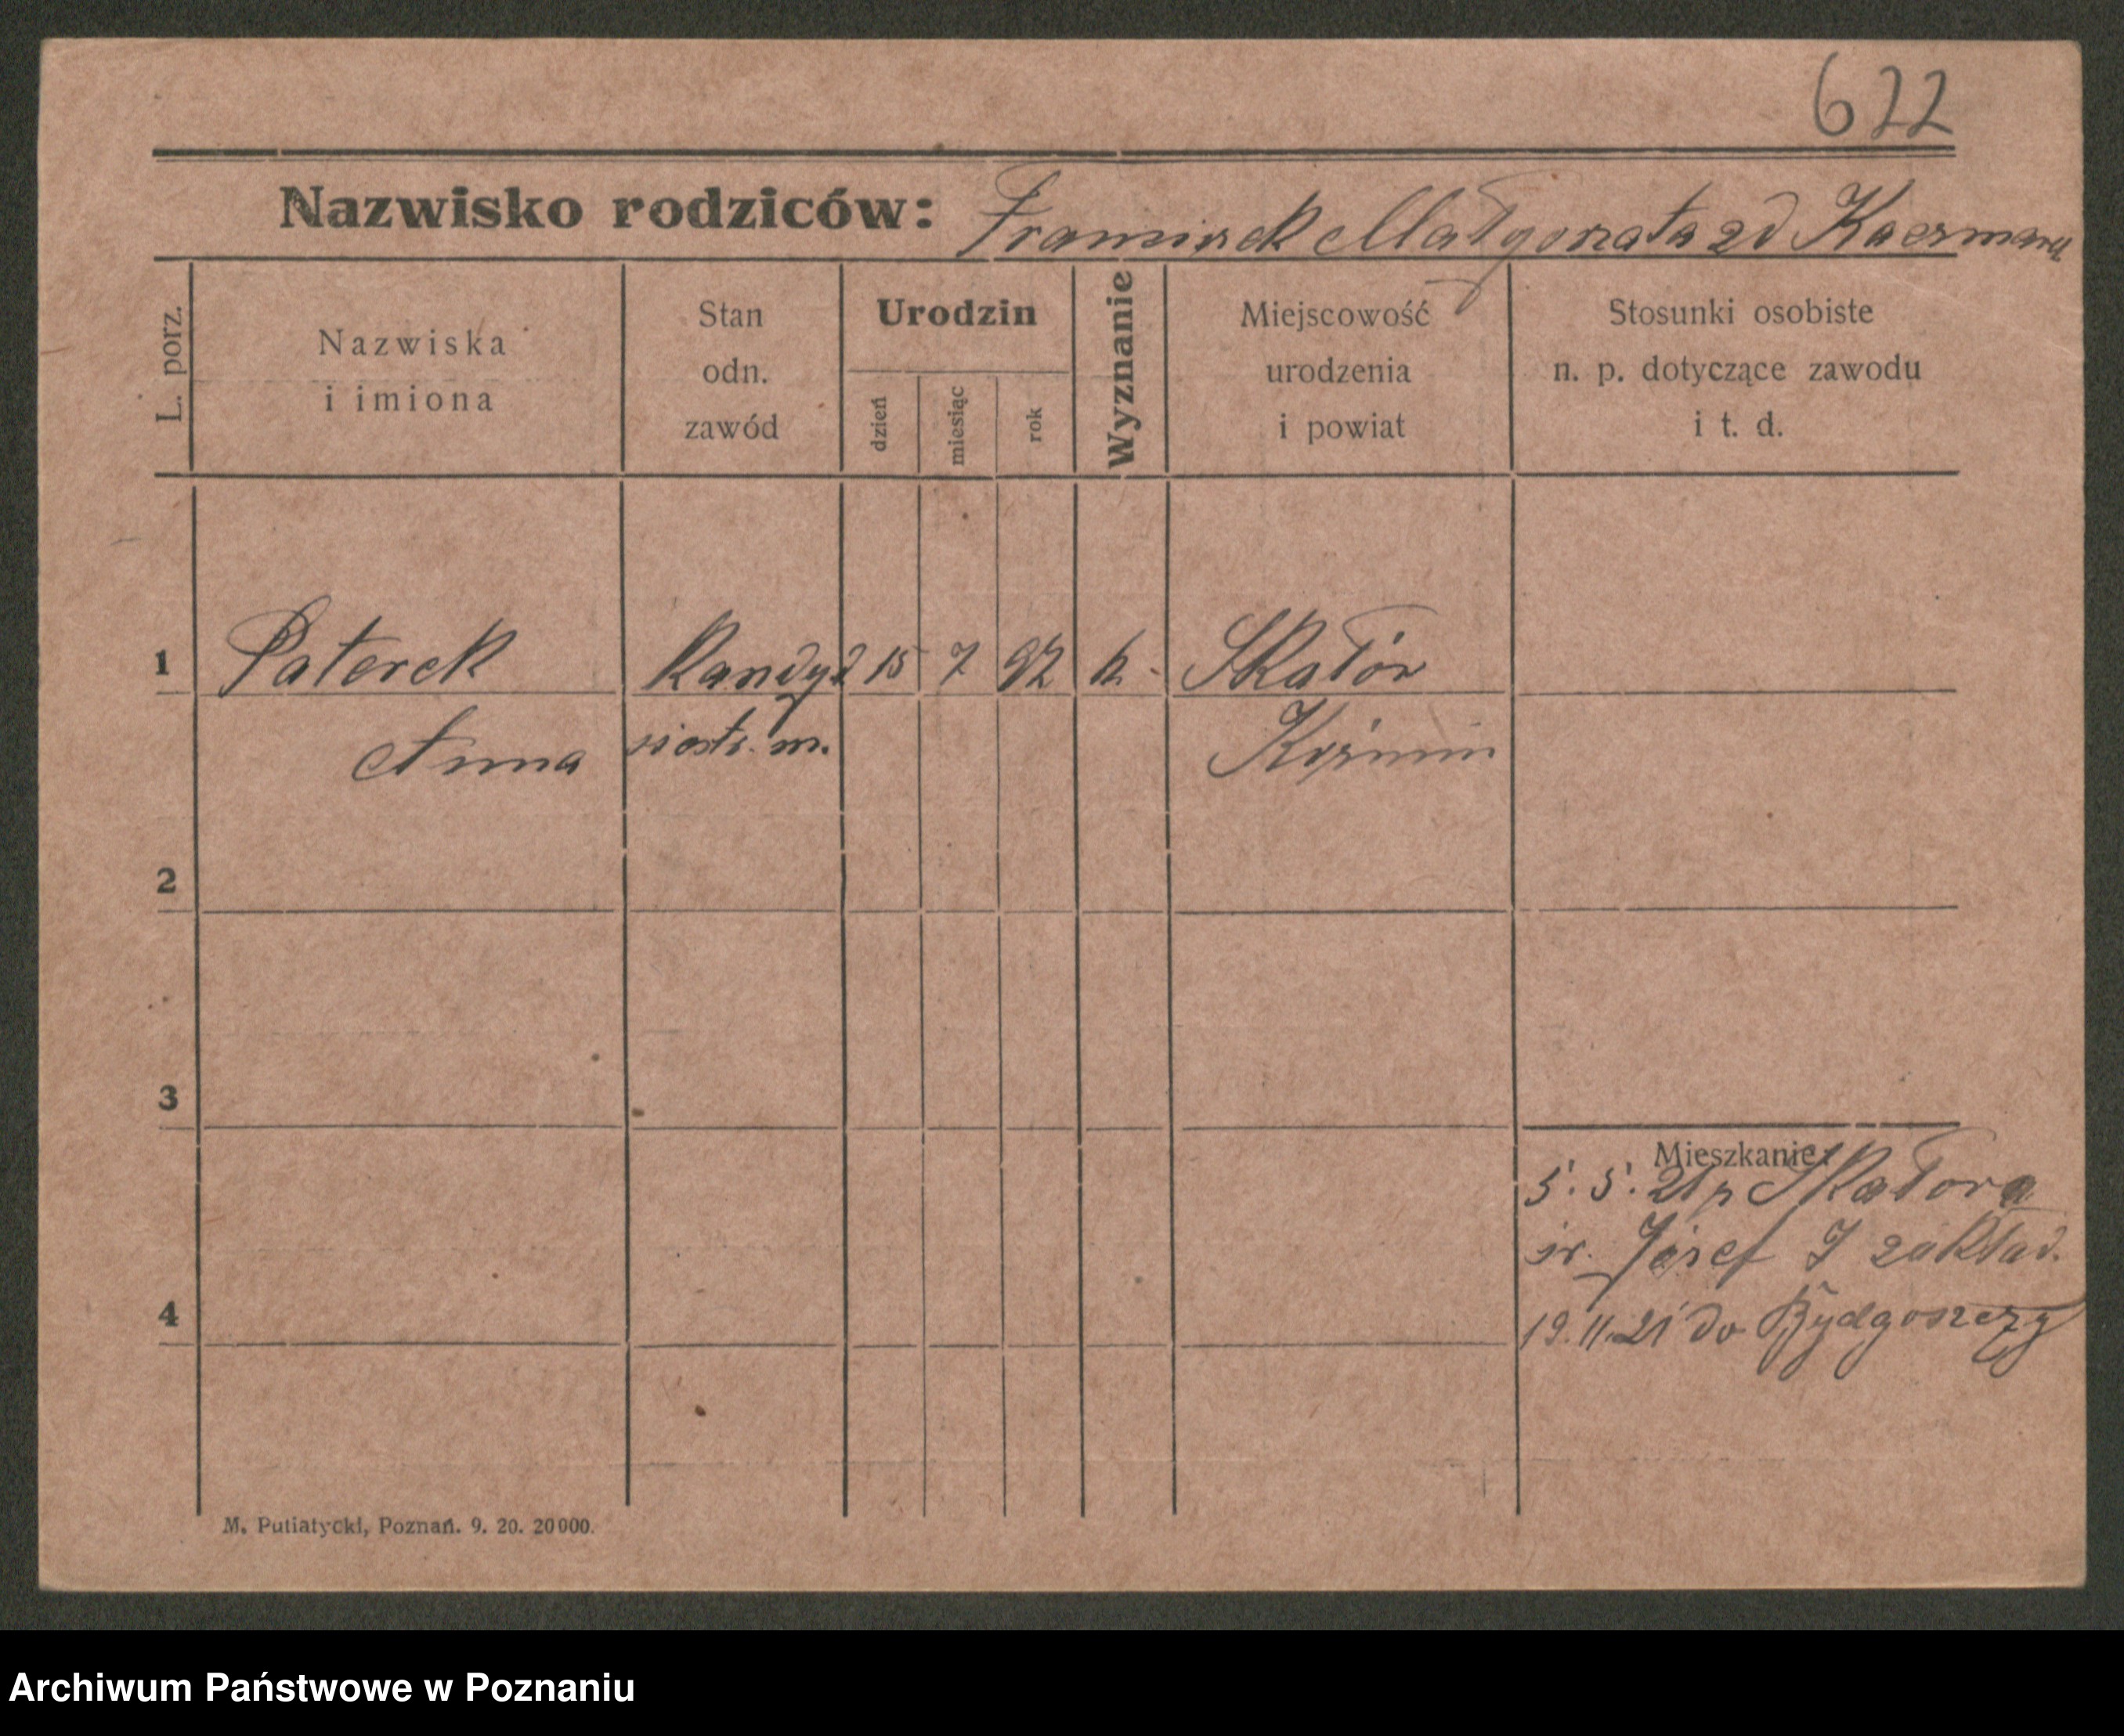 622
Nazwisko rodziców: Franciszek Małgorzata zd Kaczmarek
L. porz.
Nazwiska
i imiona
Stan
odn.
zawód
Urodzin
dzień
miesiąc
rok
Wyznanie
Miejscowość
urodzenia
i powiat
Stosunki osobiste
n. p. dotyczące zawodu
i t. d.
1 Paterek kandyd 15 7 92 k. Skałów
Anna siostr. m. Koźmin
2
3
Mieszkanie:
5. 5. 21 Skałowa
św. Józef zakład.
4 19.11.21 do Bydgoszczy
M. Putiatycki, Poznań. 9. 20. 20000.
Archiwum Państwowe w Poznaniu